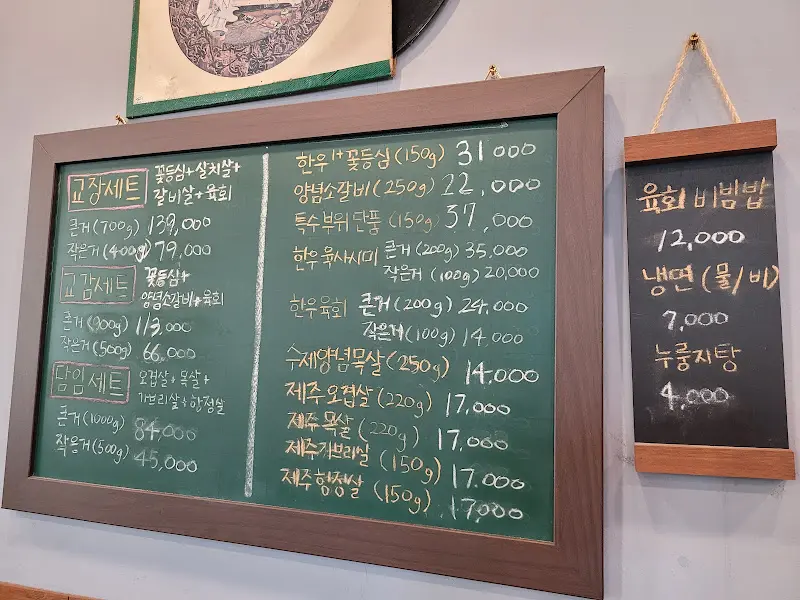 교장세트
꽃등심+살치살+
갈비살+육회
큰거(700g) 139,000
작은거(400g) 79,000
교감세트
꽃등심+
양념소갈비+육회
큰거(900g) 113,000
작은거(500g) 66,000
담임세트
오겹살+목살+
가브리살+항정살
큰거(1000g) 84,000
작은거(500g) 45,000
한우 1+꽃등심(150g) 31,000
양념소갈비(250g) 22,000
특수부위 단품(150g) 37,000
한우육사시미 큰거(200g) 35,000
작은거(100g) 20,000
한우육회 큰거(200g) 24,000
작은거(100g) 14,000
수제양념목살(250g) 14,000
제주오겹살(220g) 17,000
제주목살(220g) 17,000
제주가브리살(150g) 17,000
제주항정살(150g) 17,000
육회비빔밥
12,000
냉면(물/비)
7,000
누룽지탕
4,000